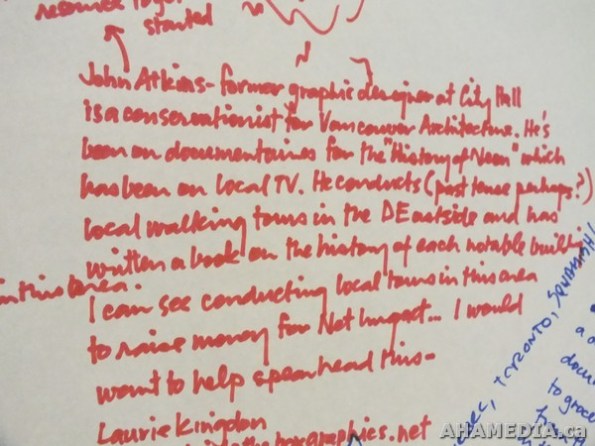 resources together
started
John Atkins - former graphic designer at City Hall
is a conservationist for Vancouver Architecture. He's
been on documentaries for the "History of Neon" which
has been on local TV. He conducts (past tense perhaps?)
local walking tours in the DEastside and has
written a book on the history of each notable building
in this area.
I can see conducting local tours in this area
to raise money for Not Impact... I would
want to help spearhead this -
Laurie Kingdon
graphics.net
TORONTO, SAVANNAH!
to
AHAMEDIA.ca